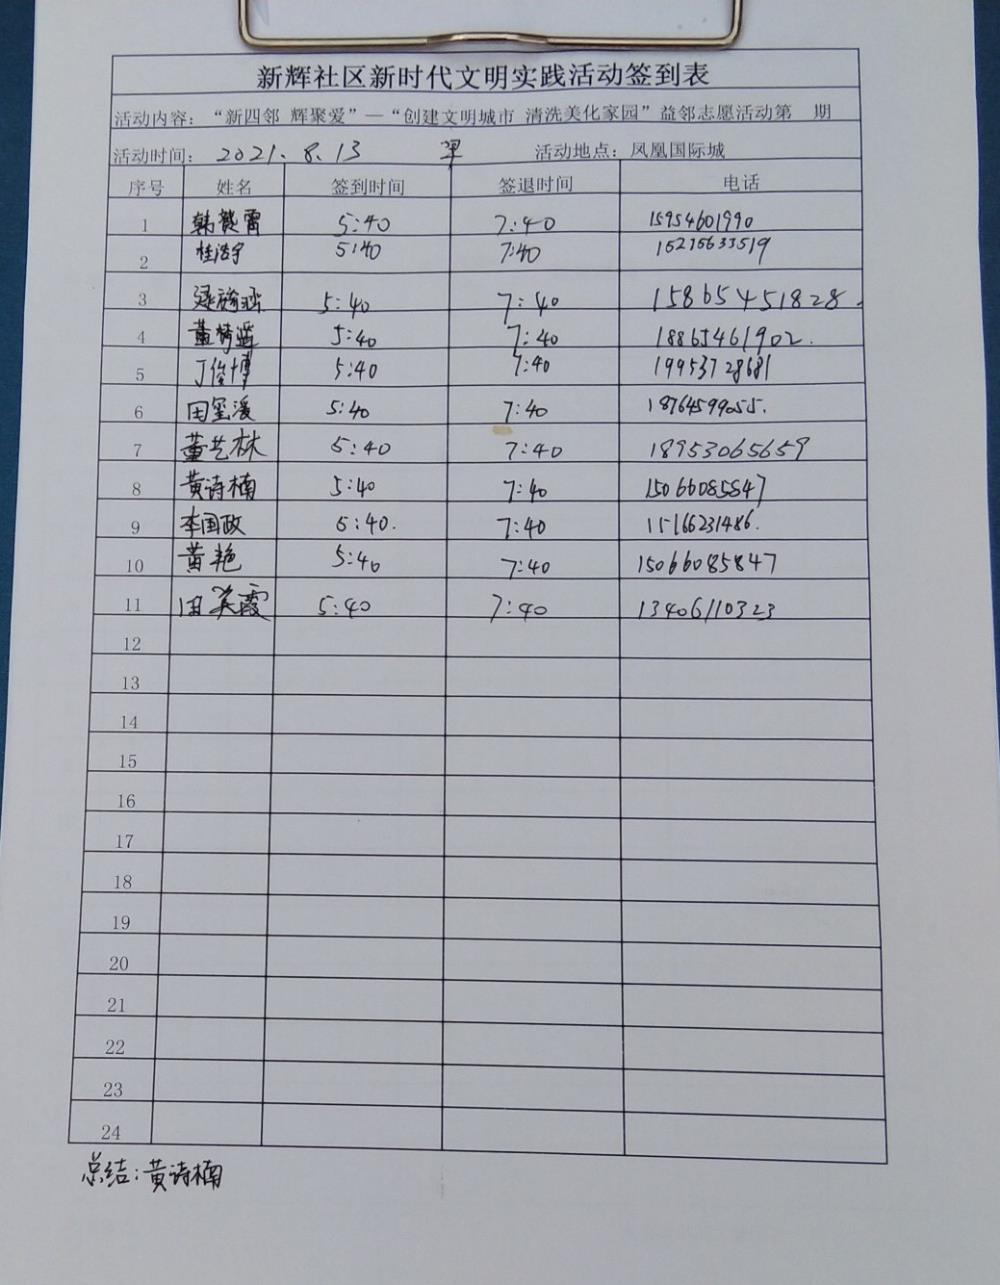 新辉社区新时代文明实践活动签到表
活动内容：“新四邻 辉聚爱”—“创建文明城市 清洗美化家园”益邻志愿活动第 期
活动时间： 2021.8.13 活动地点：凤凰国际城
序号 姓名 签到时间 签退时间 电话
1 韩 雷 5:40 7:40 15954601990
2 桂浩宇 5:40 7:40
3 5:40 7:40 15865451828.
4 董 5:40 7:40 18865461902.
5 丁俊博 5:40 7:40 19953728681
6 田玺湲 5:40 7:40 18764599055.
7 董艺林 5:40 7:40 18953065659
8 黄诗楠 5:40 7:40 15066085847
9 李国政 5:40. 7:40 15166231486.
10 黄艳 5:40 7:40 15066085847
11 田英霞 5:40 7:40 13406110323
12
13
14
15
16
17
18
19
20
21
22
23
24
总结:黄诗楠